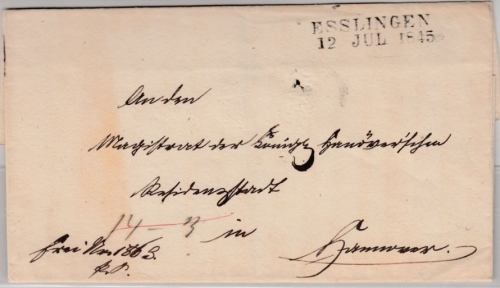 ESSLINGEN
12 JUL 1845
An den
Magistrat der Königl Hanöver'schen
Residenzstadt
14 - 3 in
Hannover.
frei No. 1863